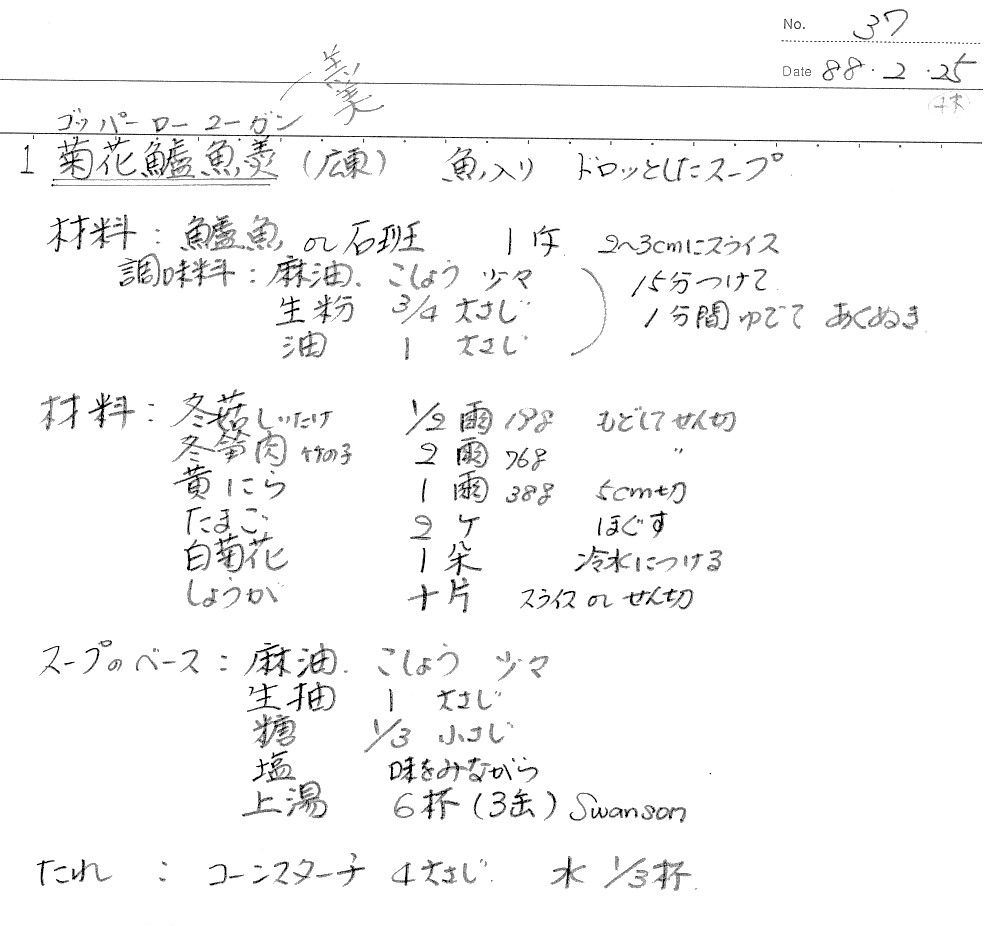 No. 37
Date 88・2・25
(木)
羹
ゴッパーローユーガン
1 菊花鱸魚羹(広東) 魚入り ドロッとしたスープ
材料:鱸魚 or 石班 1斤 2〜3cmにスライス
調味料:麻油、こしょう 少々 15分つけて
生粉 3/4 大さじ 1分間ゆでて あくぬき
油 1 大さじ
材料:冬菇 しいたけ 1/2 兩 19g もどしてせん切
冬筍肉 竹の子 2 兩 76g 〃
黄にら 1 兩 38g 5cm切
たまご 2ケ ほぐす
白菊花 1朵 冷水につける
しょうが 十片 スライス or せん切
スープのベース:麻油、こしょう 少々
生抽 1 大さじ
糖 1/3 小さじ
塩 味をみながら
上湯 6杯(3缶)Swanson
たれ : コーンスターチ 4大さじ 水 1/3杯